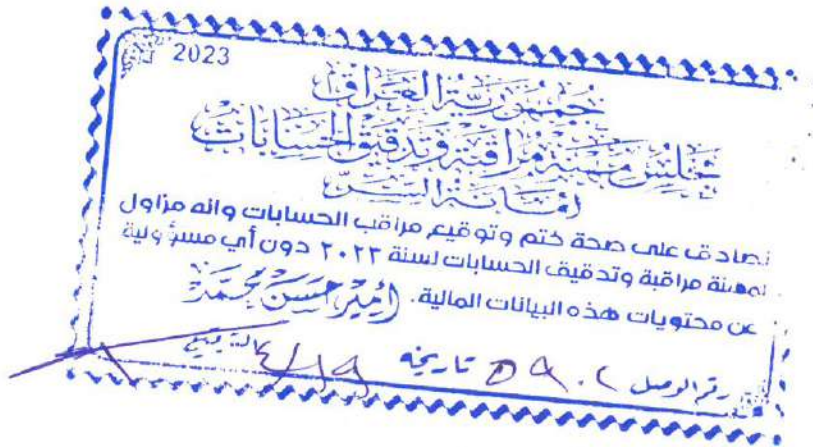 2023
جمهورية العراق
مجلس مهنة مراقبة وتدقيق الحسابات
امانة السر
نصادق على صحة ختم وتوقيع مراقب الحسابات وانه مزاول
لمهنة مراقبة وتدقيق الحسابات لسنة ٢٠٢٣ دون أي مسؤولية
عن محتويات هذه البيانات المالية. (أمير حسن محمد)
رقم الوصل ٥٩٠٢ تاريخه ٤/١٩ التوقيع